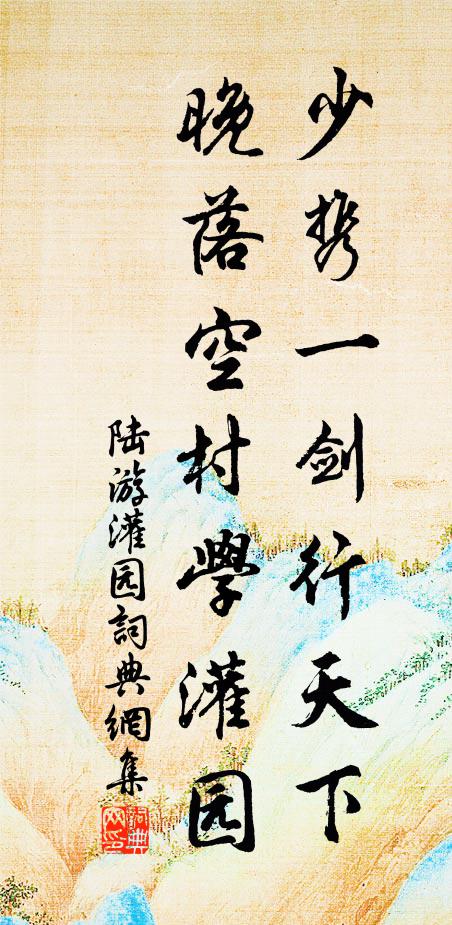 少携一剑行天下
晚落空村學灌园
陆游灌园詞典網集
詞典
网印